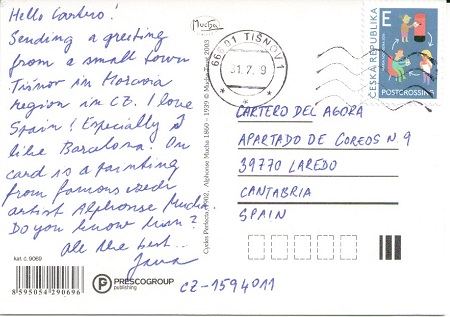 Hello Cartero!
Sending a greeting
from a small town
Tišnov in Moravia
region in CZ. I love
Spain! Especially I
like Barcelona. On
card is a painting
from famous czech
artist Alphonse Mucha.
Do you know him?
All the best..
Jana
kat. č. 9069
8595054290696
PRESCOGROUP
publishing
CZ-1594011
Mucha
Cycles Perfecta, 1902, Alphonse Mucha 1860 - 1939 © Mucha Trust 2003
666 01 TIŠNOV 1
31.7.
E
ČESKÁ REPUBLIKA
POSTCROSSING
CARTERO DEL AGORA
APARTADO DE COREOS N.9
39770 LAREDO
CANTABRIA
SPAIN